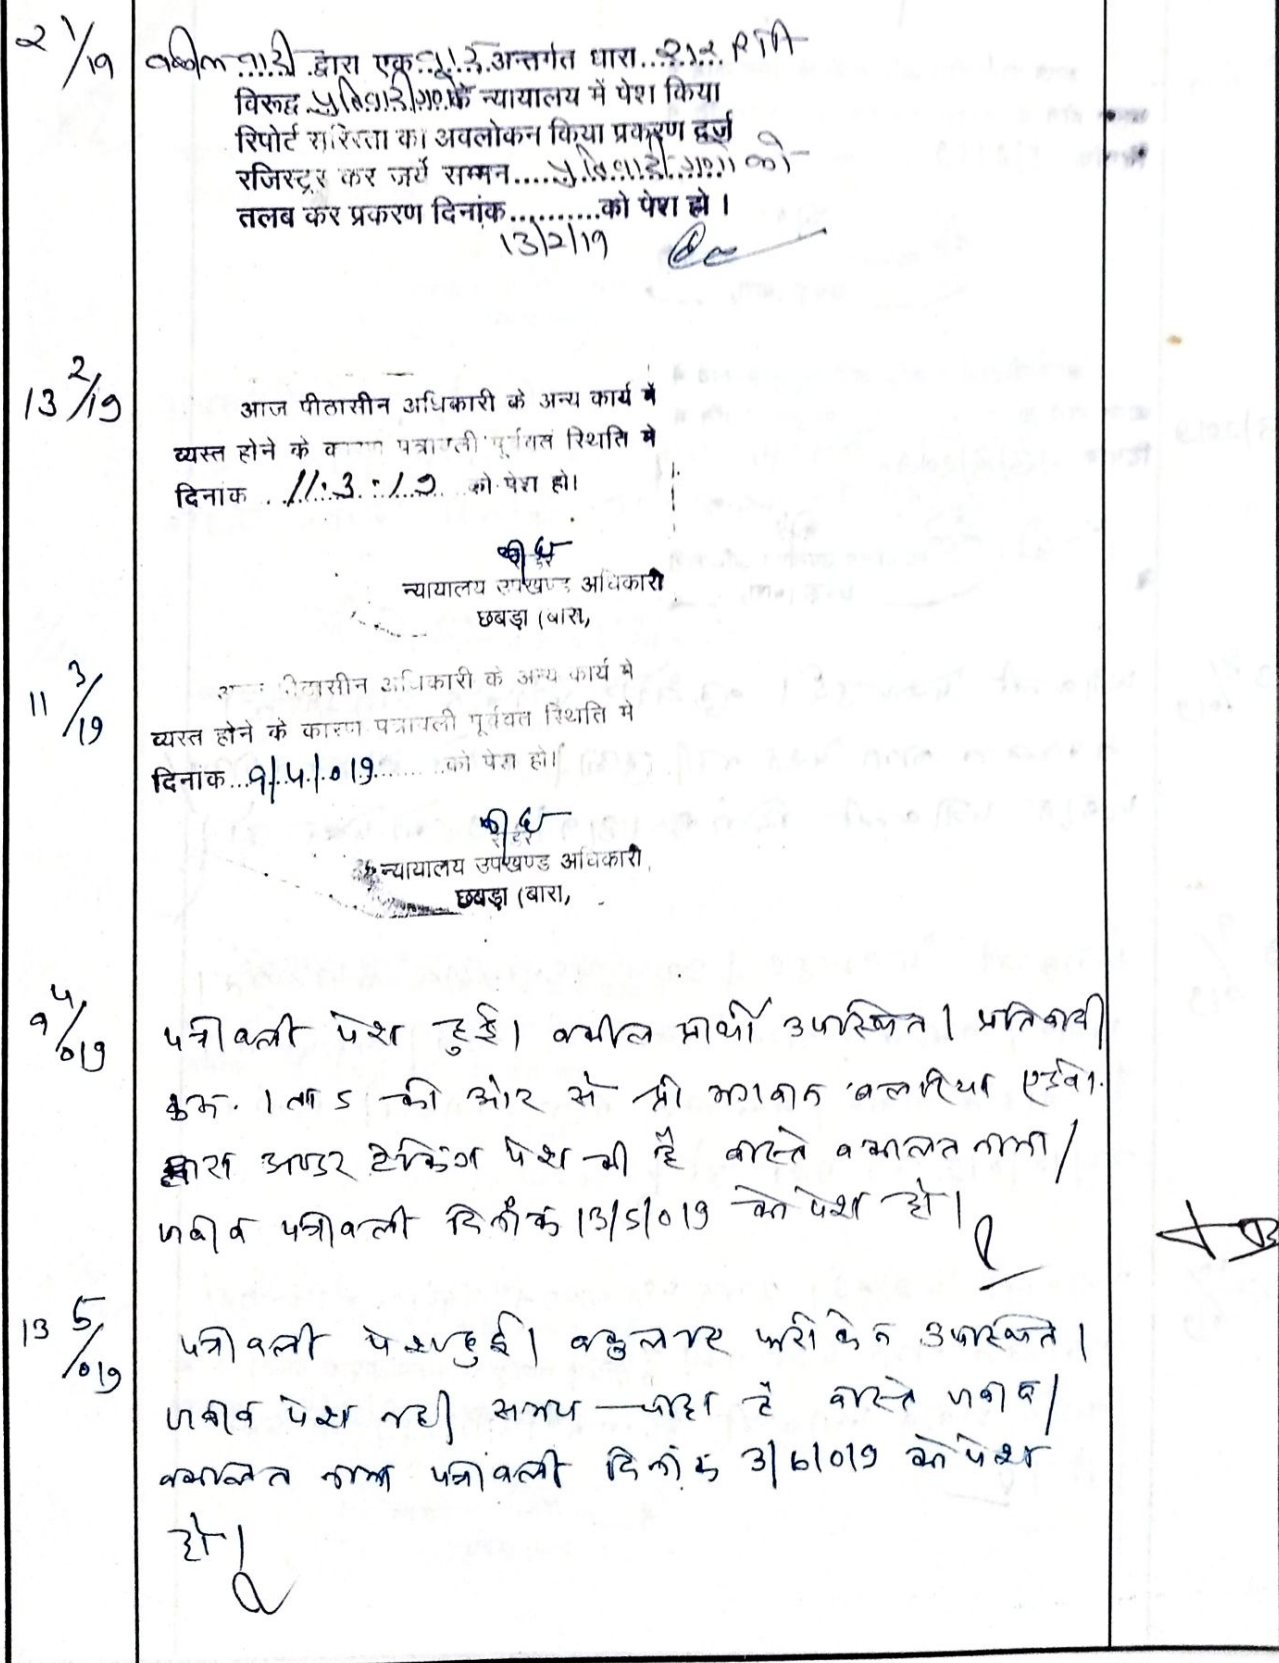 2 1/19
वकील वादी द्वारा एक वाद अन्तर्गत धारा 212 RTA
विरूद्ध प्रतिवादीगण के न्यायालय में पेश किया
रिपोर्ट सरिस्ता का अवलोकन किया प्रकरण दर्ज
रजिस्ट्रर कर जर्ये सम्मन.....प्रतिवादीगण को
तलब कर प्रकरण दिनांक..........को पेश हो ।
13/2/19
13 2/19
आज पीठासीन अधिकारी के अन्य कार्य में
व्यस्त होने के कारण पत्रावली पूर्ववत स्थिति मे
दिनांक 11.3.19 को पेश हो।
रीडर
न्यायालय उपखण्ड अधिकारी
छबड़ा (बारा,
11 3/19
आज पीठासीन अधिकारी के अन्य कार्य मे
व्यस्त होने के कारण पत्रावली पूर्ववत स्थिति मे
दिनांक...9/4/019.......को पेश हो।
रीडर
न्यायालय उपखण्ड अधिकारी,
छबड़ा (बारा,
9 4/019
पत्रावली पेश हुई। वकील प्रार्थी उपस्थित। प्रतिवादी
क्रम. 1 ता 5 की ओर से श्री भगवान एडवो.
द्वारा अण्डर टेकिंग पेश की है वास्ते वकालत नामा/
जवाब पत्रावली दिनांक 13/5/019 को पेश हो।
13 5/019
पत्रावली पेश हुई। वकुलाए फरीकेन उपस्थित।
जवाब पेश नही समय चाहा है वास्ते जवाब/
वकालत नामा पत्रावली दिनांक 3/6/019 को पेश
हो।